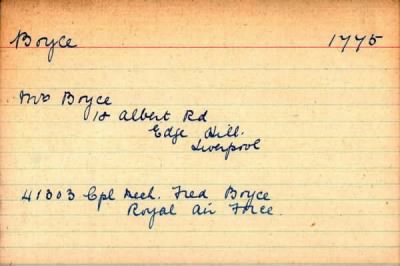 Boyce 1775
Mrs Boyce
18 Albert Rd
Edge Hill.
Liverpool
41303 Cpl Mech. Fred Boyce
Royal Air Force.